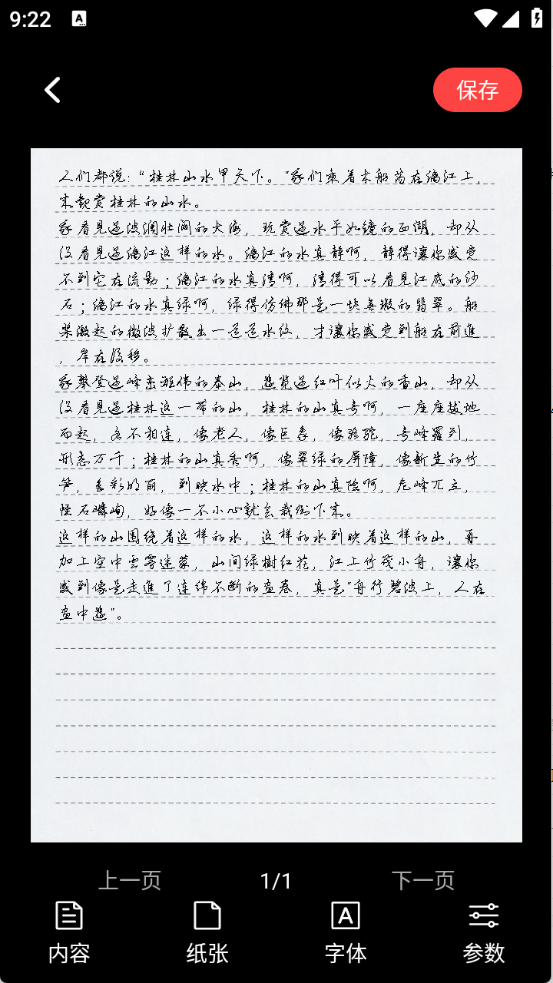 9:22
A
保存
人们都说："桂林山水甲天下。"我们乘着木船荡在漓江上,
来观赏桂林的山水。
我看见过波澜壮阔的大海, 玩赏过水平如镜的西湖, 却从
没看见过漓江这样的水。漓江的水真静啊, 静得讓你感觉
不到它在流動；漓江的水真清啊, 清得可以看見江底的沙
石；漓江的水真绿啊, 绿得仿佛那是一块無瑕的翡翠。船
桨激起的微波扩散出一道道水纹, 才讓你感觉到船在前進
, 岸在後移。
我攀登过峰峦雄伟的泰山, 遊览过红叶似火的香山, 却从
没看見过桂林这一带的山, 桂林的山真奇啊, 一座座拔地
而起, 各不相連, 像老人, 像巨象, 像骆驼, 奇峰羅列,
形态万千；桂林的山真秀啊, 像翠绿的屏障, 像新生的竹
笋, 色彩明丽, 倒映水中；桂林的山真险啊, 危峰兀立,
怪石嶙峋, 好像一不小心就会栽倒下来。
这样的山围绕着这样的水, 这样的水倒映着这样的山, 再
加上空中雲雾迷蒙, 山间绿樹红花, 江上竹筏小舟, 讓你
感到像是走進了连绵不断的畫卷, 真是"舟行碧波上, 人在
畫中遊"。
上一页
1/1
下一页
内容
纸张
A
字体
参数